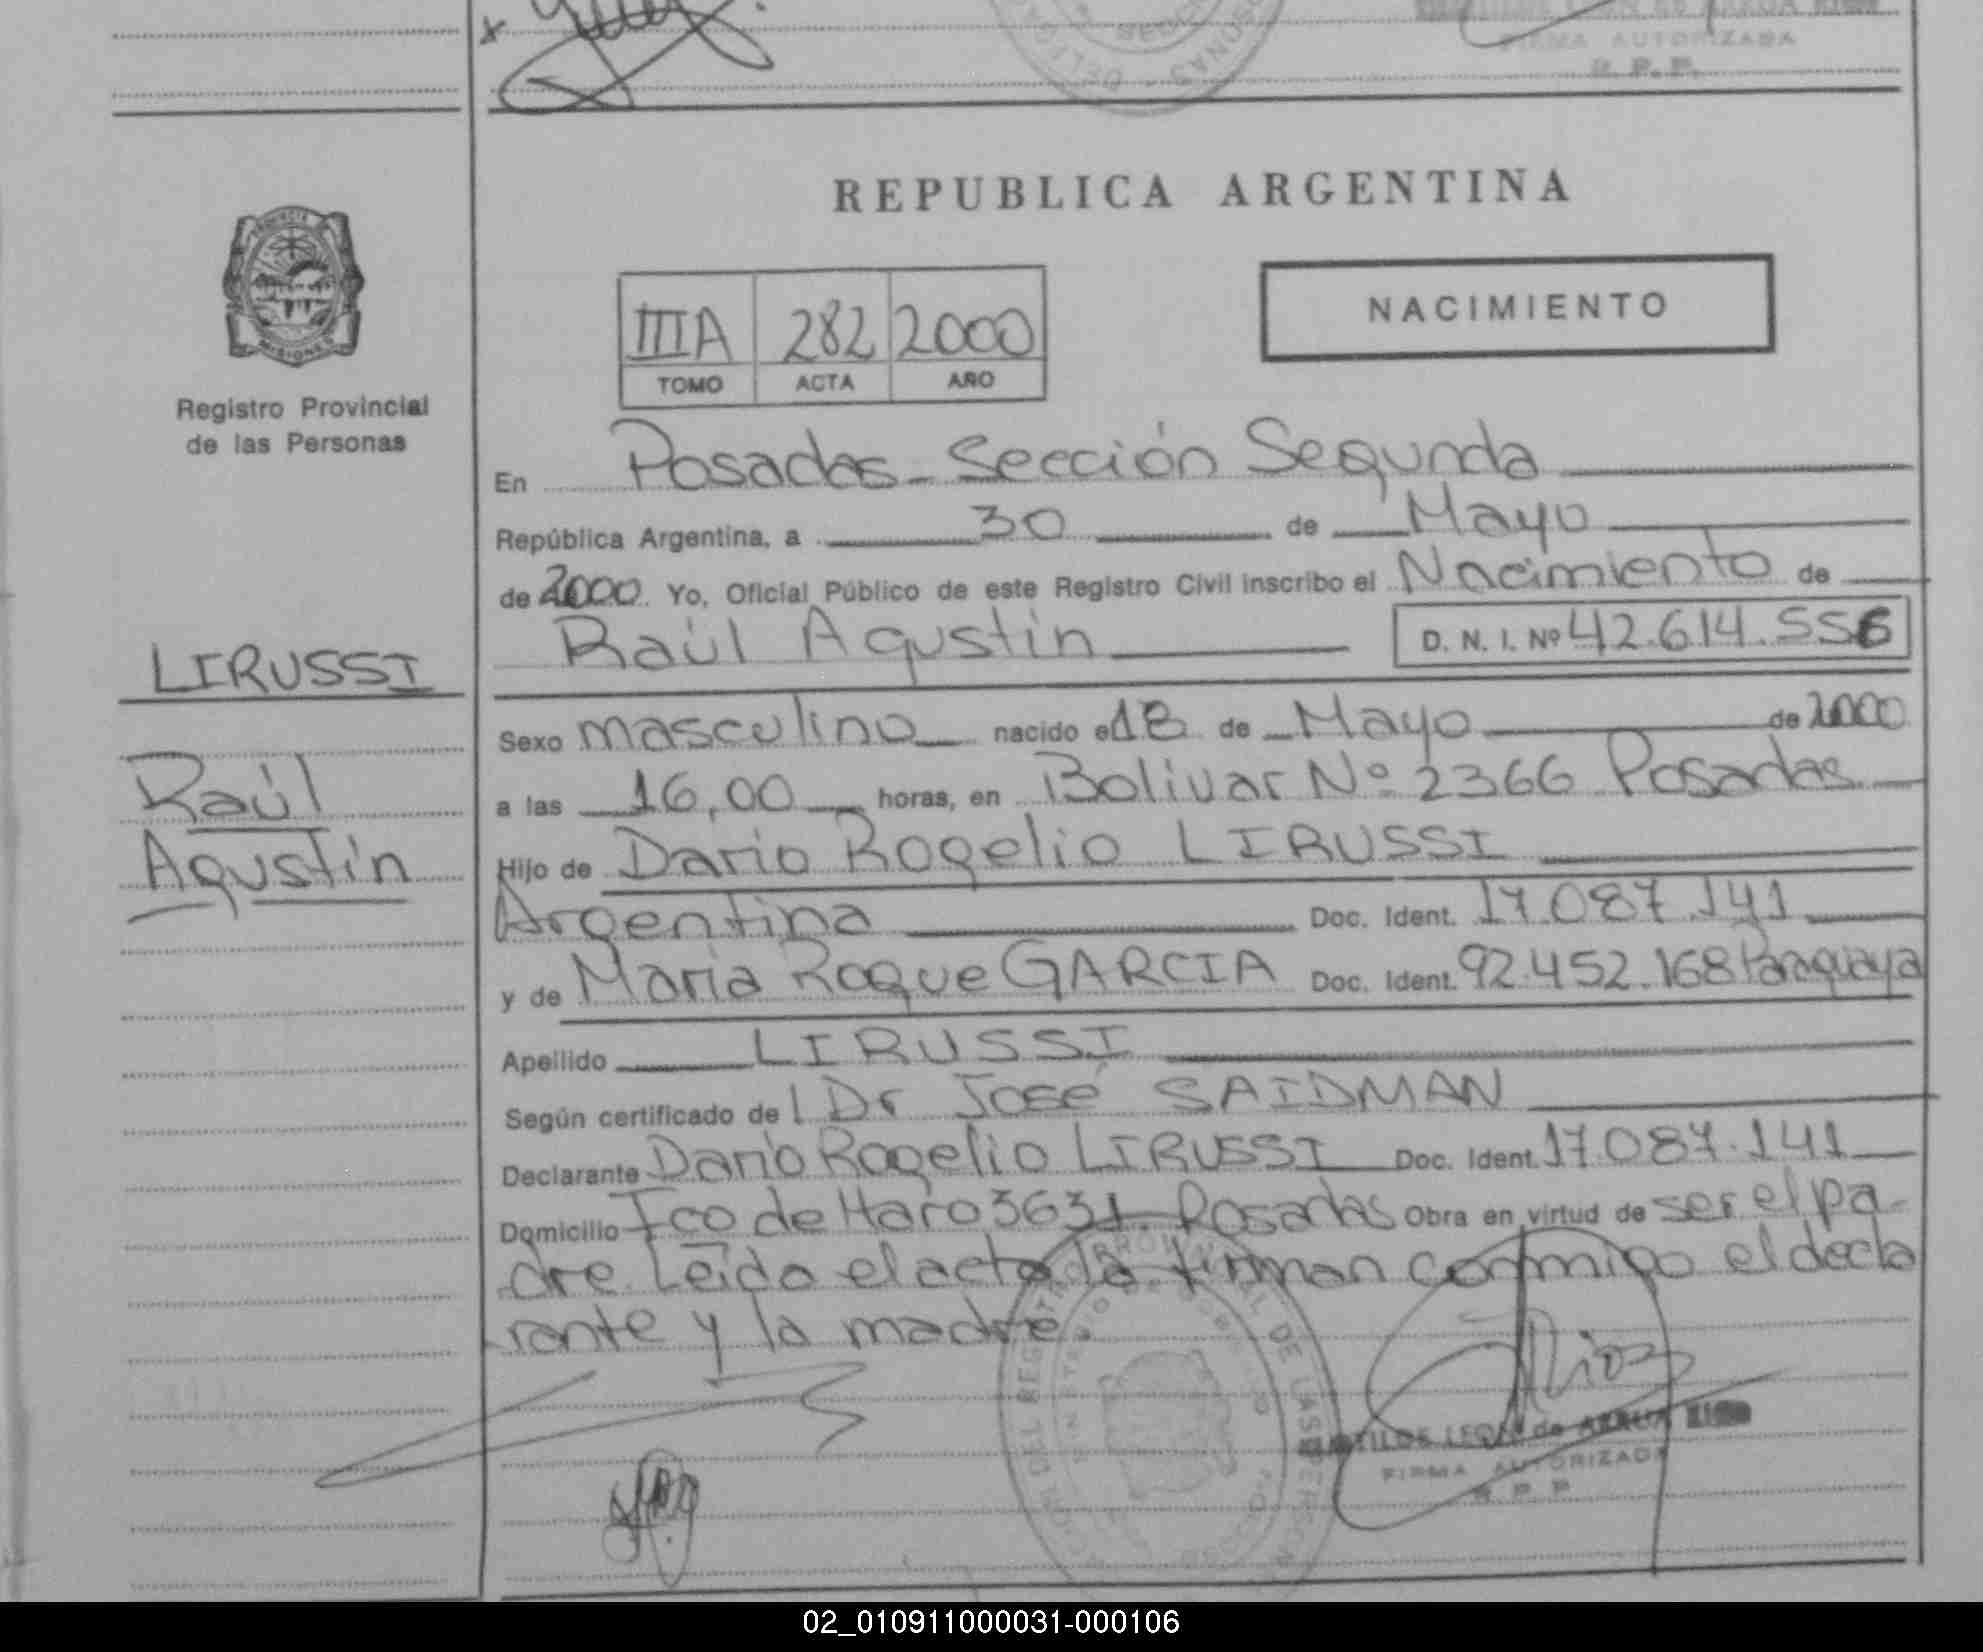 FIRMA AUTORIZADA
R. P. P.
REPUBLICA ARGENTINA
NACIMIENTO
IIIA 282 2000
TOMO ACTA AÑO
MISIONES
Registro Provincial
de las Personas
En Posadas - Sección Segunda
República Argentina, a 30 de Mayo
de 2000. Yo, Oficial Público de este Registro Civil inscribo el Nacimiento de
Raúl Agustín D. N. I. Nº 42.614.556
LIRUSSI
Raúl
Agustín
Sexo masculino nacido el 18 de Mayo de 2000
a las 16,00 horas, en Bolivar Nº 2366 Posadas
Hijo de Dario Rogelio LIRUSSI
Argentina Doc. Ident. 17.087.141
y de Maria Roque GARCIA Doc. Ident. 92.452.168 Paraguaya
Apellido LIRUSSI
Según certificado de l Dr José SAIDMAN
Declarante Dario Rogelio LIRUSSI Doc. Ident. 17.087.141
Domicilio Fco de Haro 3631. Posadas Obra en virtud de ser el pa-
dre. Leída el acta la firman conmigo el decla
rante y la madre.
FIRMA AUTORIZADA
R. P. P.
02_010911000031-000106